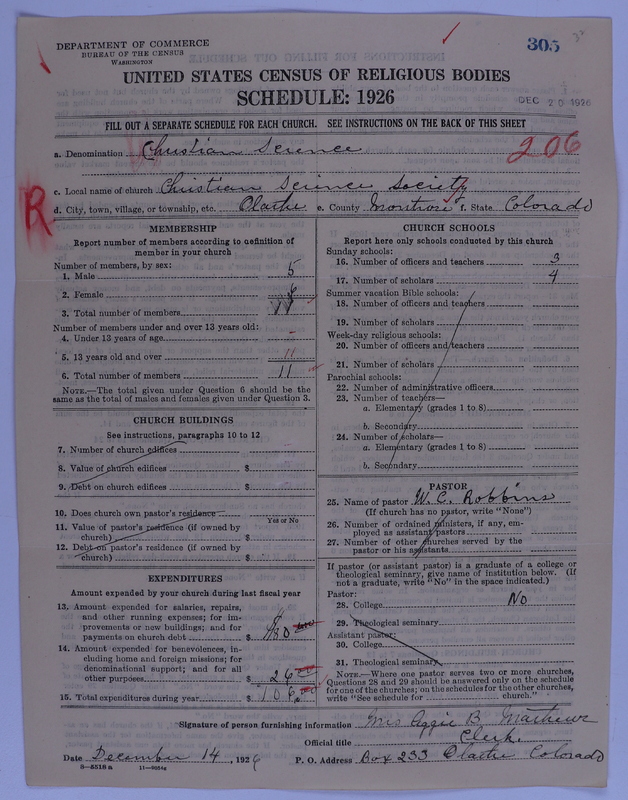 DEPARTMENT OF COMMERCE
BUREAU OF THE CENSUS
WASHINGTON
305
UNITED STATES CENSUS OF RELIGIOUS BODIES
SCHEDULE: 1926
DEC 20 1926
FILL OUT A SEPARATE SCHEDULE FOR EACH CHURCH. SEE INSTRUCTIONS ON THE BACK OF THIS SHEET
a. Denomination Christian Science
206
c. Local name of church Christian Science Society
R
d. City, town, village, or township, etc. Olathe e. County Montrose f. State Colorado
MEMBERSHIP
Report number of members according to definition of
member in your church
Number of members, by sex:
1. Male 5
2. Female 6
3. Total number of members 11
Number of members under and over 13 years old:
4. Under 13 years of age -
5. 13 years old and over 11
6. Total number of members 11
NOTE.—The total given under Question 6 should be the
same as the total of males and females given under Question 3.
CHURCH BUILDINGS
See instructions, paragraphs 10 to 12
7. Number of church edifices
8. Value of church edifices $
9. Debt on church edifices $
10. Does church own pastor's residence
Yes or No
11. Value of pastor's residence (if owned by
church) $
12. Debt on pastor's residence (if owned by
church) $
EXPENDITURES
Amount expended by your church during last fiscal year
13. Amount expended for salaries, repairs,
and other running expenses; for im-
provements or new buildings; and for
payments on church debt $ 80
14. Amount expended for benevolences, in-
cluding home and foreign missions; for
denominational support; and for all
other purposes $ 26
15. Total expenditures during year $ 106
CHURCH SCHOOLS
Report here only schools conducted by this church
Sunday schools:
16. Number of officers and teachers 3
17. Number of scholars 4
Summer vacation Bible schools:
18. Number of officers and teachers
19. Number of scholars
Week-day religious schools:
20. Number of officers and teachers
21. Number of scholars
Parochial schools:
22. Number of administrative officers
23. Number of teachers—
a. Elementary (grades 1 to 8)
b. Secondary
24. Number of scholars—
a. Elementary (grades 1 to 8)
b. Secondary
PASTOR
25. Name of pastor W. C. Robbins
(If church has no pastor, write "None")
26. Number of ordained ministers, if any, em-
ployed as assistant pastors
27. Number of other churches served by the
pastor or his assistants
If pastor (or assistant pastor) is a graduate of a college or
theological seminary, give name of institution below. (If
not a graduate, write "No" in the space indicated.)
Pastor:
28. College No
29. Theological seminary
Assistant pastor:
30. College
31. Theological seminary
NOTE.—Where one pastor serves two or more churches,
Questions 28 and 29 should be answered only on the schedule
for one of the churches; on the schedules for the other churches,
write "See schedule for church."
Signature of person furnishing information Mrs Aggie B. Mathews
Official title Clerk.
Date December 14, 1926 P. O. Address Box 233 Olathe Colorado
8—5518a 11—9054a